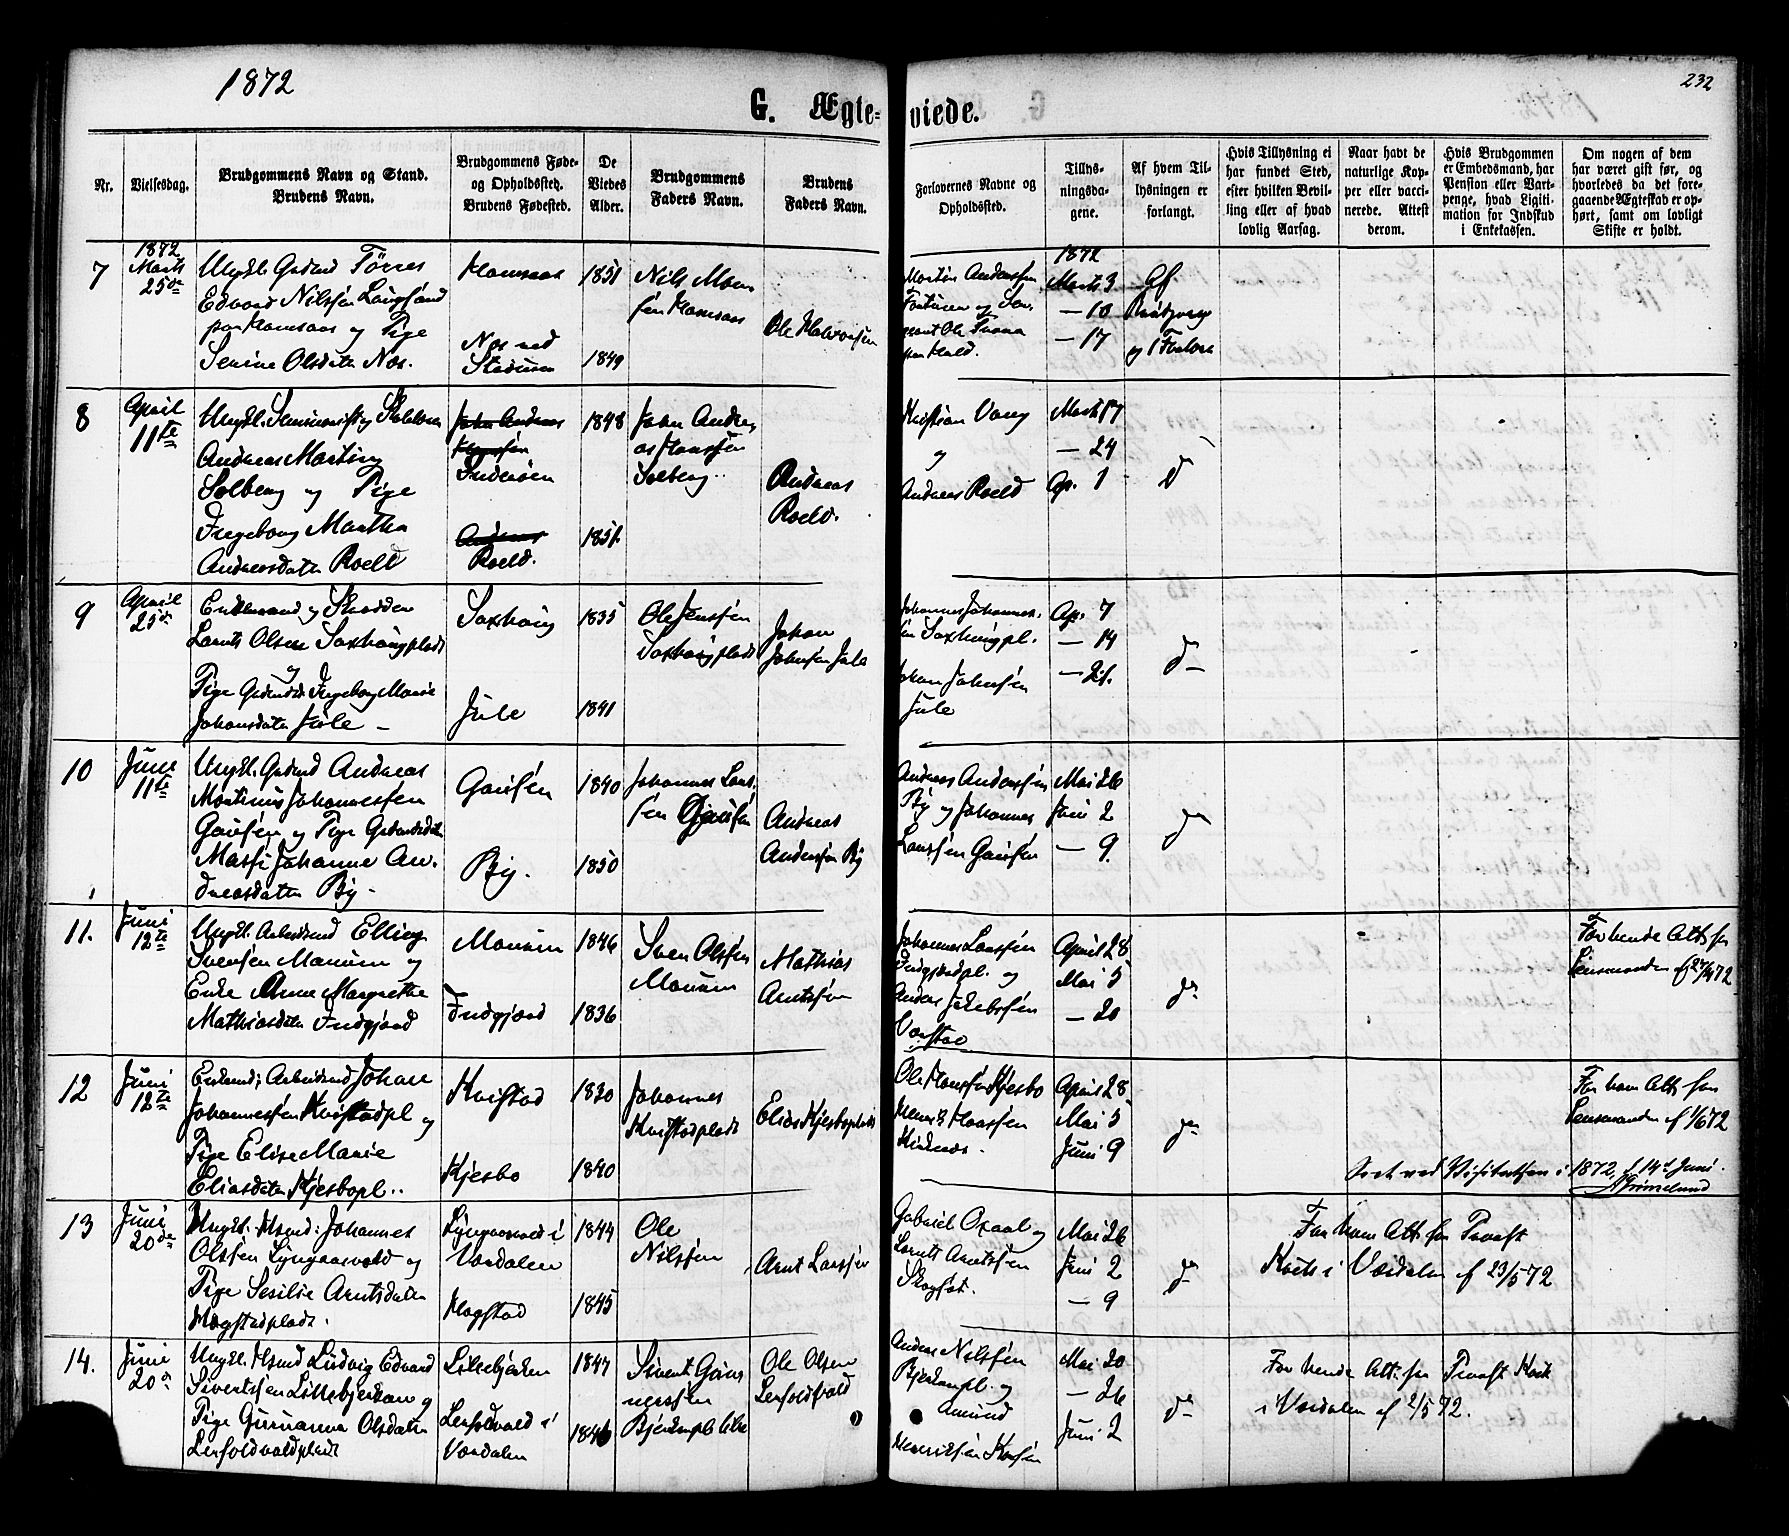 1872
232
G. Ægte-
viede.
Nr.
Vielsesdag.
Brudgommens Navn og Stand.
Brudens Navn.
Brudgommens Føde-
og Opholdssted.
Brudens Fødested.
De
Viedes
Alder.
Brudgommens
Faders Navn.
Brudens
Faders Navn.
Forlovernes Navne og
Opholdssted.
Tillys-
ningsda-
gene.
Af hvem Til-
lysningen er
forlangt.
Hvis Tillysning ei
har fundet Sted,
efter hvilken Bevil-
ling eller af hvad
lovlig Aarsag.
Naar havt de
naturlige Kop-
per eller vacci-
nerede. Attest
derom.
Hvis Brudgommen
er Embedsmand, har
Pension eller Vart-
penge, hvad Ligiti-
mation for Indskud
i Enkekassen.
Om nogen af dem
har været gift før, og
hvorledes da det fore-
gaaende Ægteskab er op-
hørt, samt om lovligt
Skifte er holdt.
7
1872
Marts
25de
Ungkl. Gdmd Tørres
Edvard Nilssen
og Pige
Serine Olsdatter Næs.
Næs ved
1851
1849
Nils Mon
sen
Ole Halvorsen
Martin Anderssen
og Ser
geant Ole
1872
Marts 3
— 10
— 17
Af
Brudgom
og 1 Forlover
8
April
11te
Ungkl. Seminarist og
Andreas Martin
Solberg og Pige
Ingeborg Martha
Andreasdatter Roeld
John Andreas
Hanssen
Inderøen
Andreas
Roeld.
1848
1851.
John Andre
as Hanssen
Solberg.
Andreas
Roeld.
Kristian Vang
og
Andreas Roeld
Marts 17
— 24
Ap. 1
d
9
April
25de
Enkemand og Skredder
Lornts Olsen Saxhaugplads
og
Pige Ingeborg Marie
Johansdatter Jule —
Saxhaug
Jule
1835
1841
Ole Jenssen
Saxhaugplads
Johan
Johnsen Jule
Johannes Johannes
sen Saxhaugpl.
Johan Johnsen
Jule
Ap. 7
— 14
— 21.
d—
10
Juni
11te
Ungkl. Gdmd Andreas
Martinus Johannessen
Gausen og Pige Gdmdsdatter
Massi Johanna An-
dreasdatter By.
Gausen
By.
1840
1850
Johannes Lars
sen Gausen
Andreas
Anderssen By
Andreas Anderssen
By og Johannes
Larssen Gausen
Mai 26
Juni 2
— 9.
do
11.
Juni
12te
Ungkl. Arbeidsmd Elling
Svensen Marum og
Enke Anne Margrethe
Mathiasdatter Indgjord
Marum
Indgjord
1846
1836
Sven Olssen
Marum
Mathias
Arntsen
Johannes Larssen
Indgjordpl. og
Anders Jakobssen
April 28
Mai 5
— 20
do
For hende Att. fra
Lensmanden af 27/4 72
12
Juni
12te
Enkemd: Arbeidsmd Johan
Johannessen Kvistadpl og
Pige Elise Marie
Eliasdatter Kjesbopl..
Kvistad
Kjesbo
1830
1840
Johannes
Kvistadplads
Elias Kjesboplads
Ole Hanssen Kjesbo
Henrik Haassen
April 28
Mai 5
Juni 9
do
For ham Att. fra
Lensmanden af 1/6 72
Seet ved Visitatsen i 1872, d 14d Juni.
AGrimelund
13
Juni
20de
Ungkl. Johannes
Olssen Lyngaasvald og
Pige Sesilie Arntsdatter
Hogstadplads.
Lyngaasvald i
Værdalen
Hogstad
1844
1845
Ole
Nilssen
Arnt Larssen
Gabriel Oxaal og
Lornts Arntssen
Mai 26
Juni 2
— 9
do
For ham Att. fra Provst
Koch i Værdalen af 23/5 72
14.
Juni
20de
Ungkl. Ludvig Edvard
Sivertssen Lillebjerkan og
Pige Gurianna Olsdatter
Lerfoldvaldplads
Lillebjerken
Lerfoldvald i
Værdalen
1847
1846
Sivert Gun
nerssen
Bjerkanpl
Ole Olsen
Lerfoldvald
Anders Nilssen
Bjerkanpl. og
Amund
Henrikssen
Mai 20
— 26
Juni 2
do
For hende Att. fra Provst Koch
i Værdalen af 2/5 72.